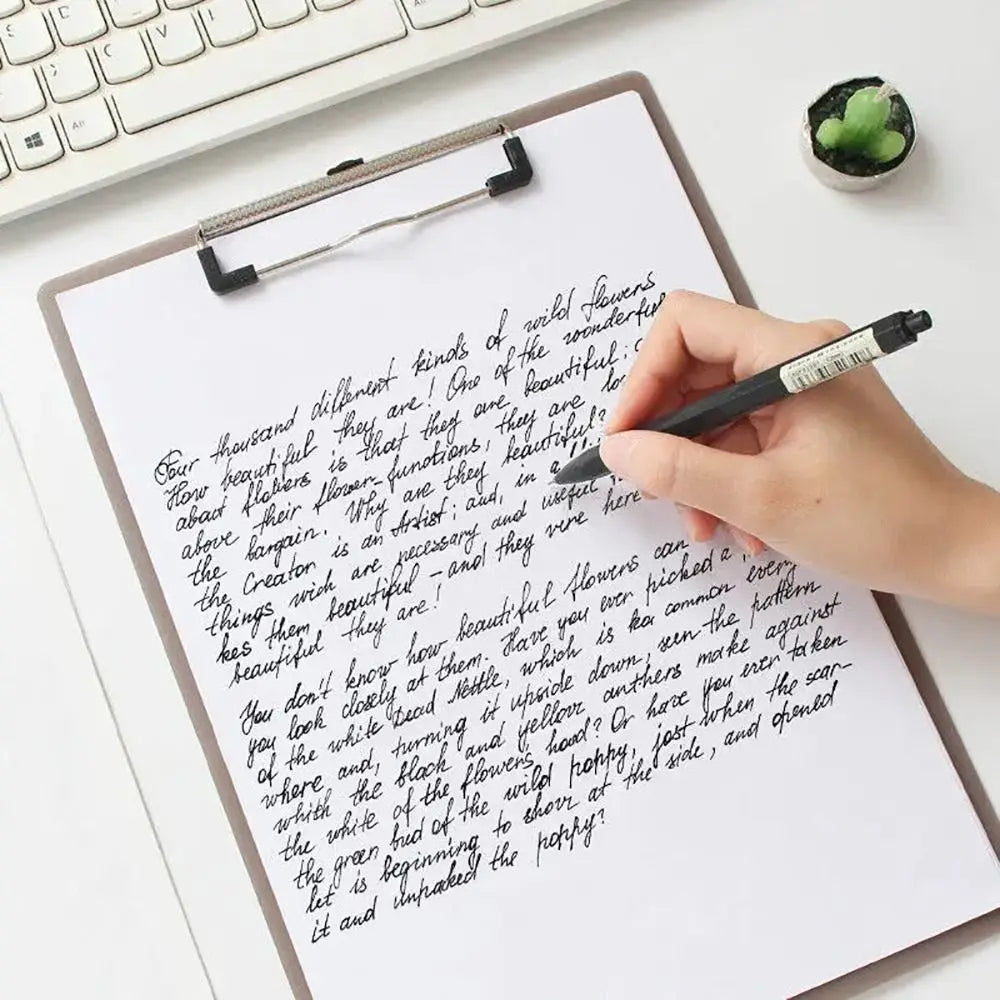 S
D
C
V
C
Alt
Alt
Four thousand different kinds of wild flowers
How beautiful they are! One of the wonderful
about flowers is that they are beautiful:
above their flower-functions, they are
the bargain. Why are they beautiful?
the Creator is an Artist; and, in a
things wich are necessary and useful
kes them beautiful – and they vire here
beautiful they are!
You don't know how beautiful flowers can
you look closely at them. Have you ever picked a
of the white Dead Nettle, which is so common every
where and, turning it upside down, seen the pattern
which the black and yellow anthers make against
the white of the flowers hood? Or have you ever taken
the green bud of the wild poppy, just when the scar-
let is beginning to show at the side, and opened
it and unpacked the poppy?